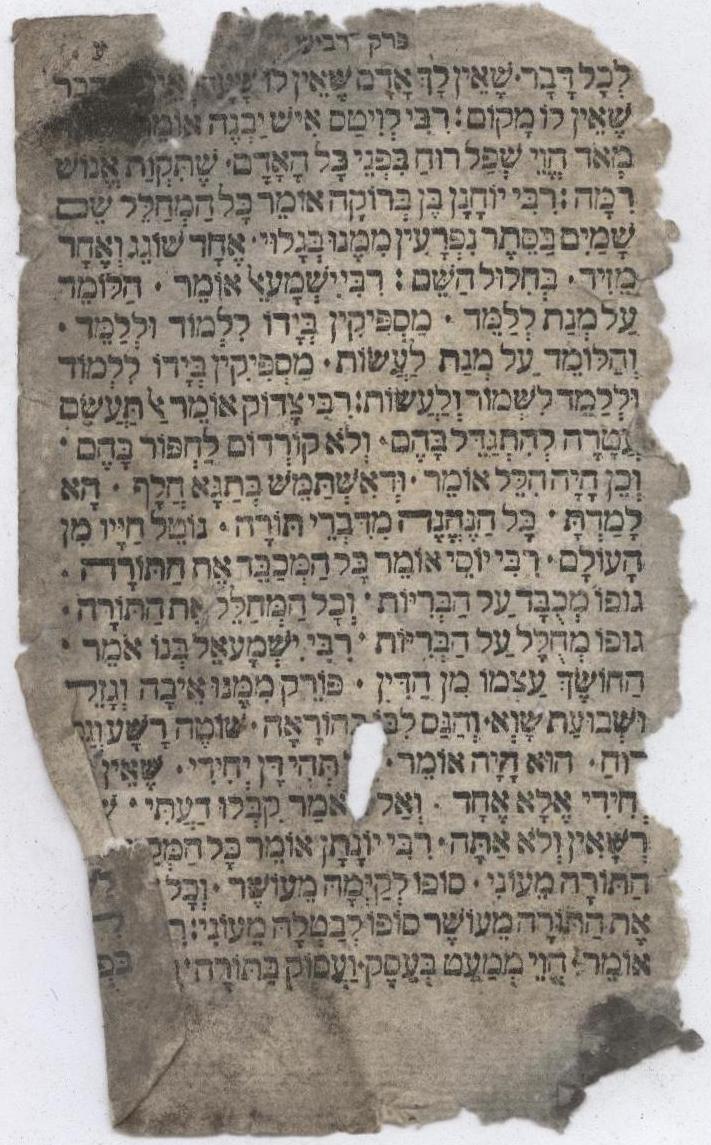 פרק רביעי ע
לְכָל דָּבָר· שֶׁאֵין לְךָ אָדָם שֶׁאֵין לוֹ שָׁעָה דבר
שֶׁאֵין לוֹ מָקוֹם: רִבִּי לְוִיטַס אִישׁ יַבְנֶה אוֹמֵר
מְאֹד הֱוֵי שְׁפַל רוּחַ בִּפְנֵי כָּל הָאָדָם· שֶׁתִּקְוַת אֱנוֹשׁ
רִמָּה: רִבִּי יוֹחָנָן בֶּן בְּרוֹקָה אוֹמֵר כָּל הַמְחַלֵּל שֵׁם
שָׁמַיִם בַּסֵּתֶר נִפְרָעִין מִמֶּנּוּ בְּגָלוּי· אֶחָד שׁוֹגֵג וְאֶחָד
מֵזִיד· בְּחִלּוּל הַשֵּׁם: רִבִּי יִשְׁמָעֵאל אוֹמֵר· הַלּוֹמֵד
עַל מְנַת לְלַמֵּד· מַסְפִּיקִין בְּיָדוֹ לִלְמוֹד וּלְלַמֵּד·
וְהַלּוֹמֵד עַל מְנַת לַעֲשׂוֹת· מַסְפִּיקִין בְּיָדוֹ לִלְמוֹד
וּלְלַמֵּד לִשְׁמוֹר וְלַעֲשׂוֹת: רִבִּי צָדוֹק אוֹמֵר אַל תַּעֲשֵׂם
עֲטָרָה לְהִתְגַּדֵּל בָּהֶם· וְלֹא קוֹרְדּוֹם לַחְפּוֹר בָּהֶם·
וְכֵן הָיָה הִלֵּל אוֹמֵר· וּדְאִשְׁתַּמֵּשׁ בְּתַגָּא חֲלָף· הָא
לָמַדְתָּ· כָּל הַנֶּהֱנֶה מִדִּבְרֵי תוֹרָה· נוֹטֵל חַיָּיו מִן
הָעוֹלָם· רִבִּי יוֹסֵי אוֹמֵר כָּל הַמְכַבֵּד אֶת הַתּוֹרָה·
גּוּפוֹ מְכֻבָּד עַל הַבְּרִיּוֹת· וְכָל הַמְחַלֵּל אֶת הַתּוֹרָה·
גּוּפוֹ מְחֻלָּל עַל הַבְּרִיּוֹת· רִבִּי יִשְׁמָעֵאל בְּנוֹ אֹמֵר·
הַחוֹשֵׂךְ עַצְמוֹ מִן הַדִּין· פּוֹרֵק מִמֶּנּוּ אֵיבָה וְגָזֵל
וּשְׁבוּעַת שָׁוְא· וְהַגַּס לִבּוֹ בְּהוֹרָאָה· שׁוֹטֶה רָשָׁע וְגַס
רוּחַ· הוּא הָיָה אוֹמֵר· תְּהִי דָן יְחִידִי· שֶׁאֵין
יְחִידִי אֶלָּא אֶחָד· וְאַל תֹּאמַר קִבְּלוּ דַעְתִּי·
רַשָּׁאִין וְלֹא אַתָּה· רִבִּי יוֹנָתָן אוֹמֵר כָּל
הַתּוֹרָה מֵעוֹנִי· סוֹפוֹ לְקַיְּמָהּ מֵעוֹשֶׁר· וְכָל
אֶת הַתּוֹרָה מֵעוֹשֶׁר סוֹפוֹ לְבַטְּלָהּ מֵעוֹנִי:
אוֹמֵר· הֱוֵי מְמַעֵט בְּעֵסֶק· וַעֲסוֹק בַּתּוֹרָה·